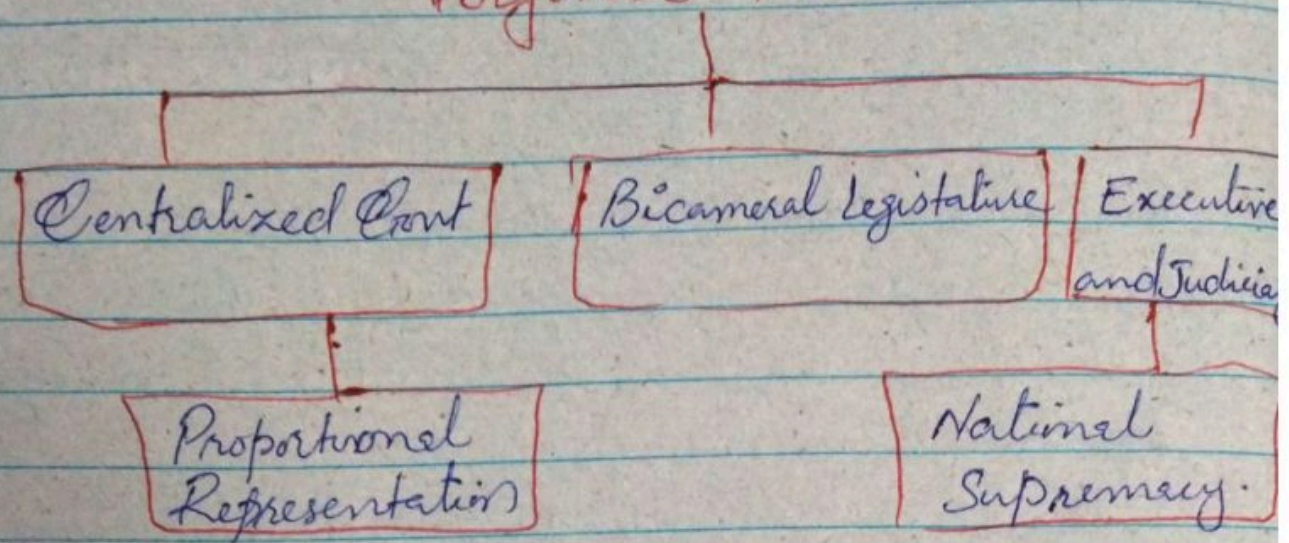 Centralized Govt
Bicameral Legistature
Executive
and Judicia
Proportional
Representation
National
Supremacy.